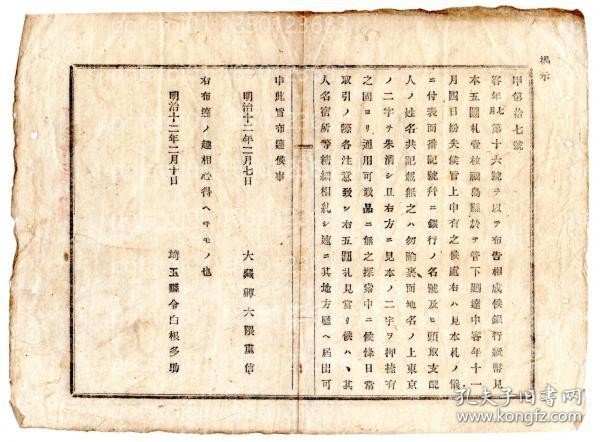 揭示
甲第拾七號
客年七月第十六號ヲ以テ布告相成候銀行紙幣見
本五圓札壹枚福島縣於テ管下遞達中客年十一
月四日紛失候旨上申有之候處右ハ見本札ノ儀
ニ付表面番記號幷ニ銀行ノ名號及ヒ頭取支配
人ノ姓名共記載無之ハ勿論裏面地名ノ上東京
ノ二字ヲ朱消シ且右方ニ見本ノ二字ヲ押捺有
之固ヨリ通用可致品ニ無之探索中ニ候條日常
取引ノ際各注意致シ右五圓札見當リ候ハヽ其
人名宿所等精細相糺シ速ニ其地方廳ヘ届出可
申此旨布達候事
明治十二年二月七日
大藏卿大隈重信
右布達ノ趣相心得ヘキモノ也
明治十二年二月十日
埼玉縣令白根多助
孔夫子旧书网
www.kongfz.com